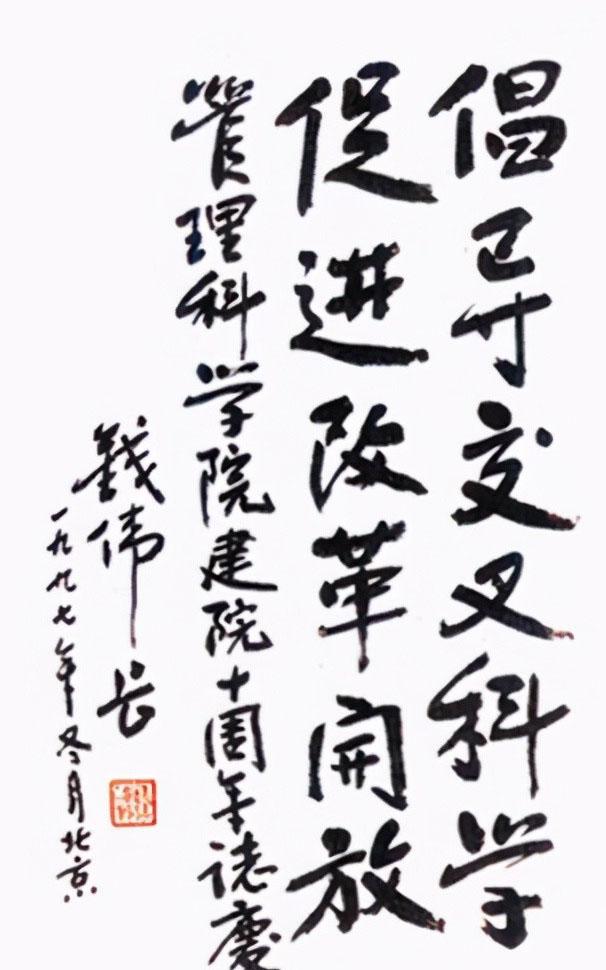 倡导交叉科学
促进改革開放
管理科学院建院十周年誌慶
錢伟长
一九九七年冬月北京